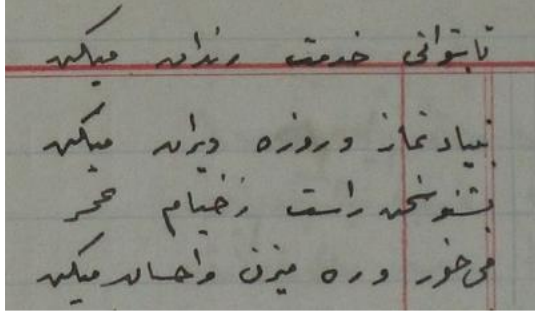 تا بتوانی خدمت رندان میکن
بنیاد نماز و روزه ویران میکن
بشنو سخن راست ز خیام عمر
می خور و ره میزن و احسان میکن